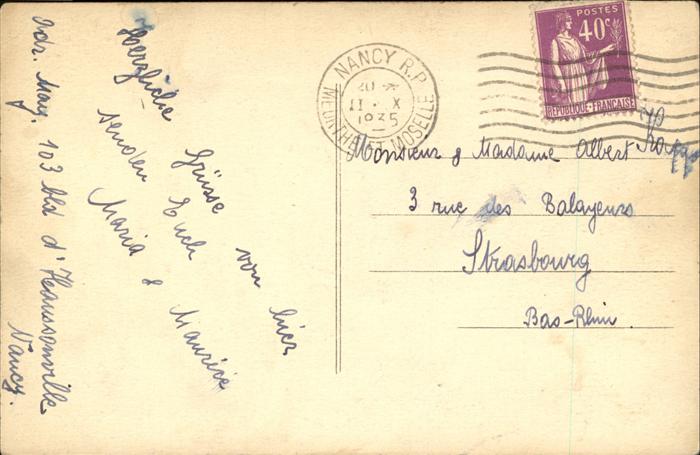 Herzliche Grüsse von hier
senden Euch
Maria & Maurice
Adr. May. 103 bld d'Haussonville
Nancy.
NANCY R.P.
II · X
1935
MEURTHE ET MOSELLE
POSTES
40c
REPUBLIQUE-FRANÇAISE
Monsieur & Madame Albert
3 rue des Balayeurs
Strasbourg
Bas-Rhin.